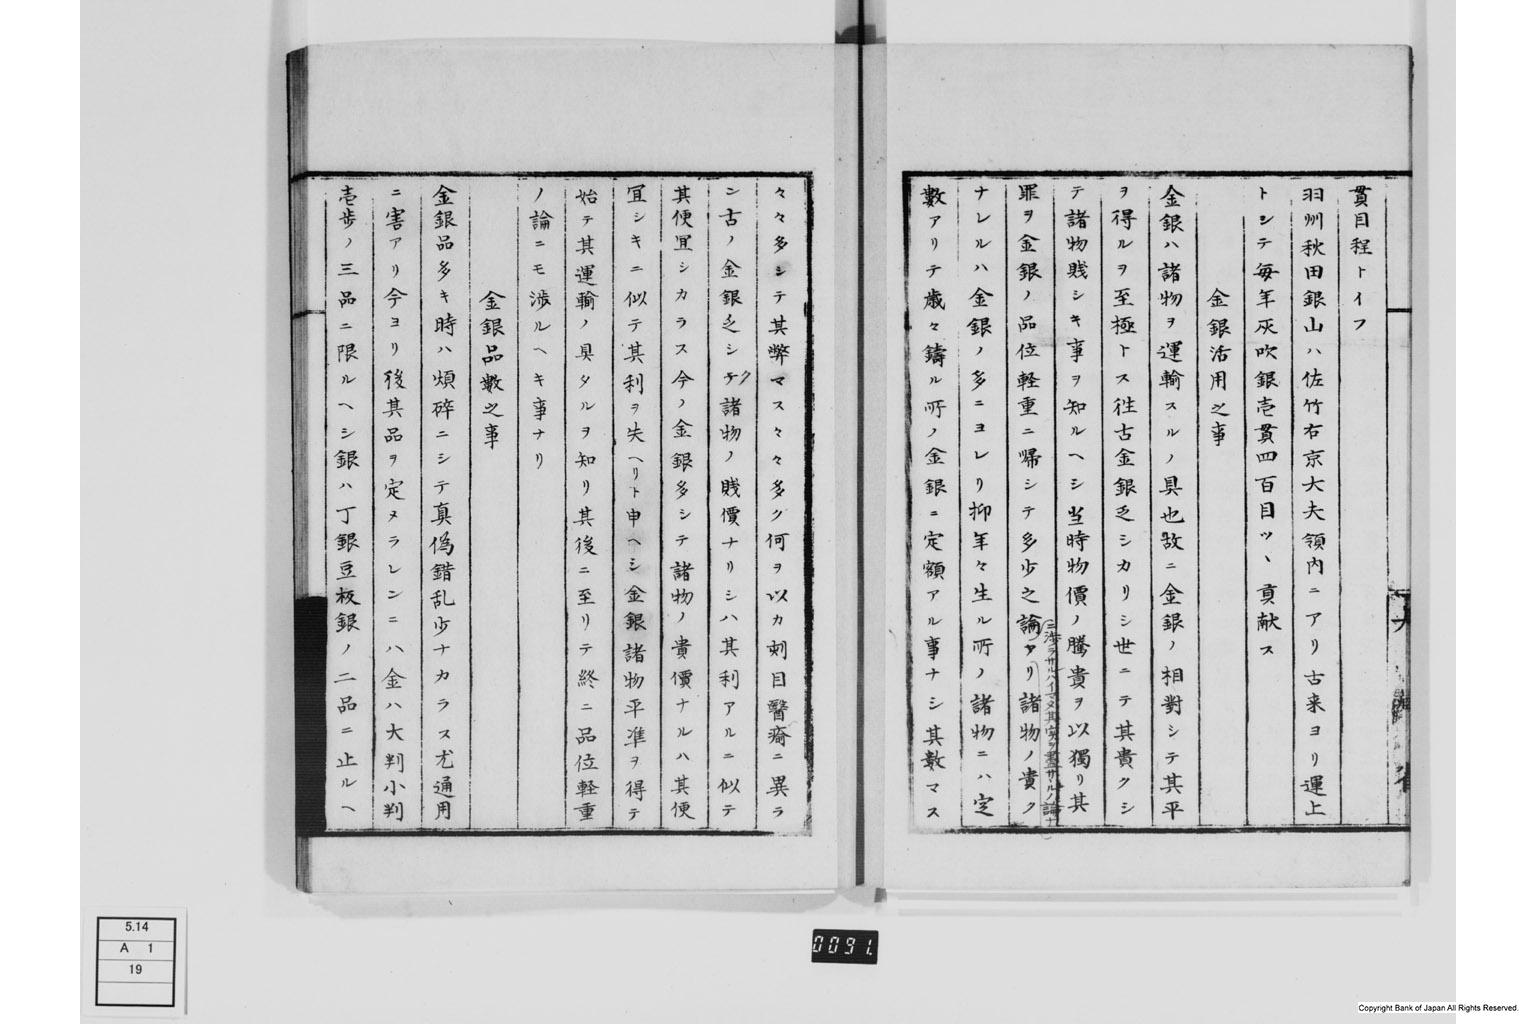 貫目程トイフ
羽州秋田銀山ハ佐竹右京大夫領内ニアリ古来ヨリ運上
トシテ毎年灰吹銀壱貫四百目ツヽ貢献ス
金銀活用之事
金銀ハ諸物ヲ運輸スルノ具也故ニ金銀ノ相對シテ其平
ヲ得ルヲ至極トス徃古金銀乏シカリシ世ニテ其貴クシ
テ諸物賎シキ事ヲ知ルヘシ当時物價ノ騰貴ヲ以獨リ其
ニ渉ラサルハイマタ其実ヲ盡サヽルノ論ナ
罪ヲ金銀ノ品位軽重ニ帰シテ多少之論アリ諸物ノ貴ク
ナレルハ金銀ノ多ニヨレリ抑年々生ル所ノ諸物ニハ定
數アリテ歳々鑄ル所ノ金銀ニ定額アル事ナシ其數マス
々々多シテ其弊マス々々多ク何ヲ以カ刺目醫瘡ニ異ラ
ン古ノ金銀乏シテク諸物ノ賎價ナリシハ其利アルニ似テ
其便宜シカラス今ノ金銀多シテ諸物ノ貴價ナルハ其便
宜シキニ似テ其利ヲ失ヘリト申ヘシ金銀諸物平準ヲ得テ
始テ其運輸ノ具タルヲ知リ其後ニ至リテ終ニ品位軽重
ノ論ニモ渉ルヘキ事ナリ
金銀品數之事
金銀品多キ時ハ煩碎ニシテ真偽錯乱少ナカラス尤通用
ニ害アリ今ヨリ後其品ヲ定メラレンニハ金ハ大判小判
壱歩ノ三品ニ限ルヘシ銀ハ丁銀豆板銀ノ二品ニ止ルヘ
5.14
A 1
19
0091.
Copyright Bank of Japan All Rights Reserved.